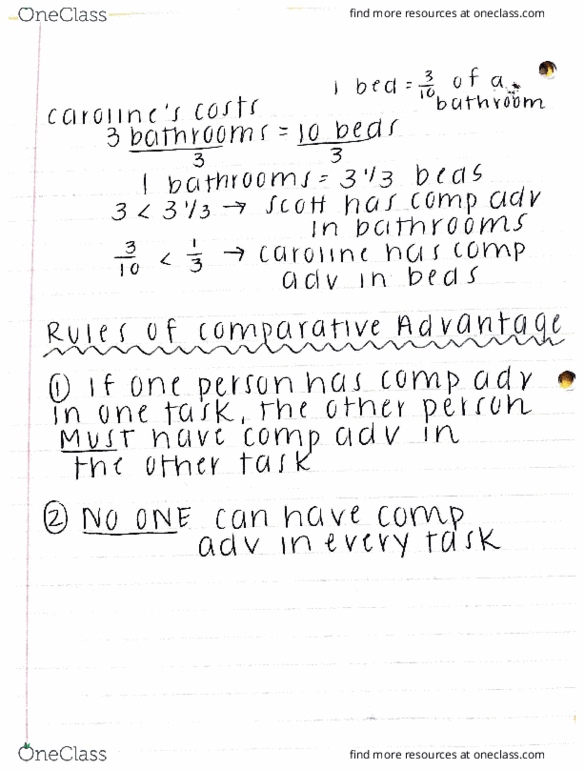 OneClass
find more resources at oneclass.com
1 bed = 3/10 of a
bathroom
caroline's costs
3 bathrooms = 10 beds
3 3
1 bathrooms = 3 1/3 beds
3 < 3 1/3 → scott has comp adv
in bathrooms
3/10 < 1/3 → caroline has comp
adv in beds
Rules of comparative Advantage
① If one person has comp adv
in one task, the other person
MUST have comp adv in
the other task
② NO ONE can have comp
adv in every task
OneClass
find more resources at oneclass.com